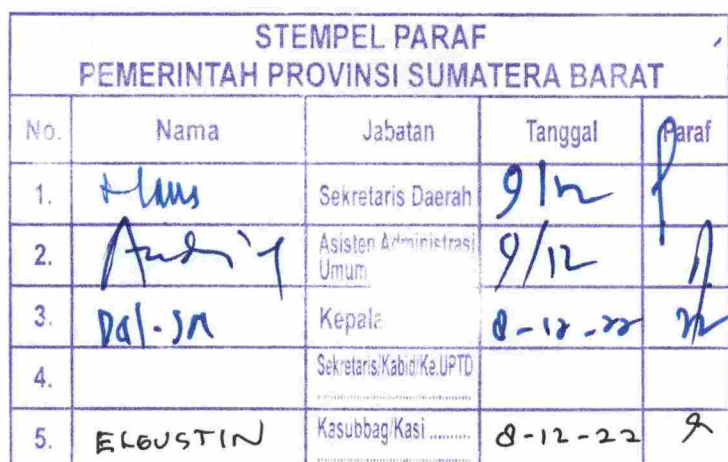 STEMPEL PARAF
PEMERINTAH PROVINSI SUMATERA BARAT
No. Nama Jabatan Tanggal Paraf
1. Hans Sekretaris Daerah 9/12
2. Andri Y Asisten Administrasi Umum 9/12
3. Kepala 8-12-22
4. Sekretaris/Kabid/Ka.UPTD
5. ELGUSTIN Kasubbag/Kasi .......... 8-12-22